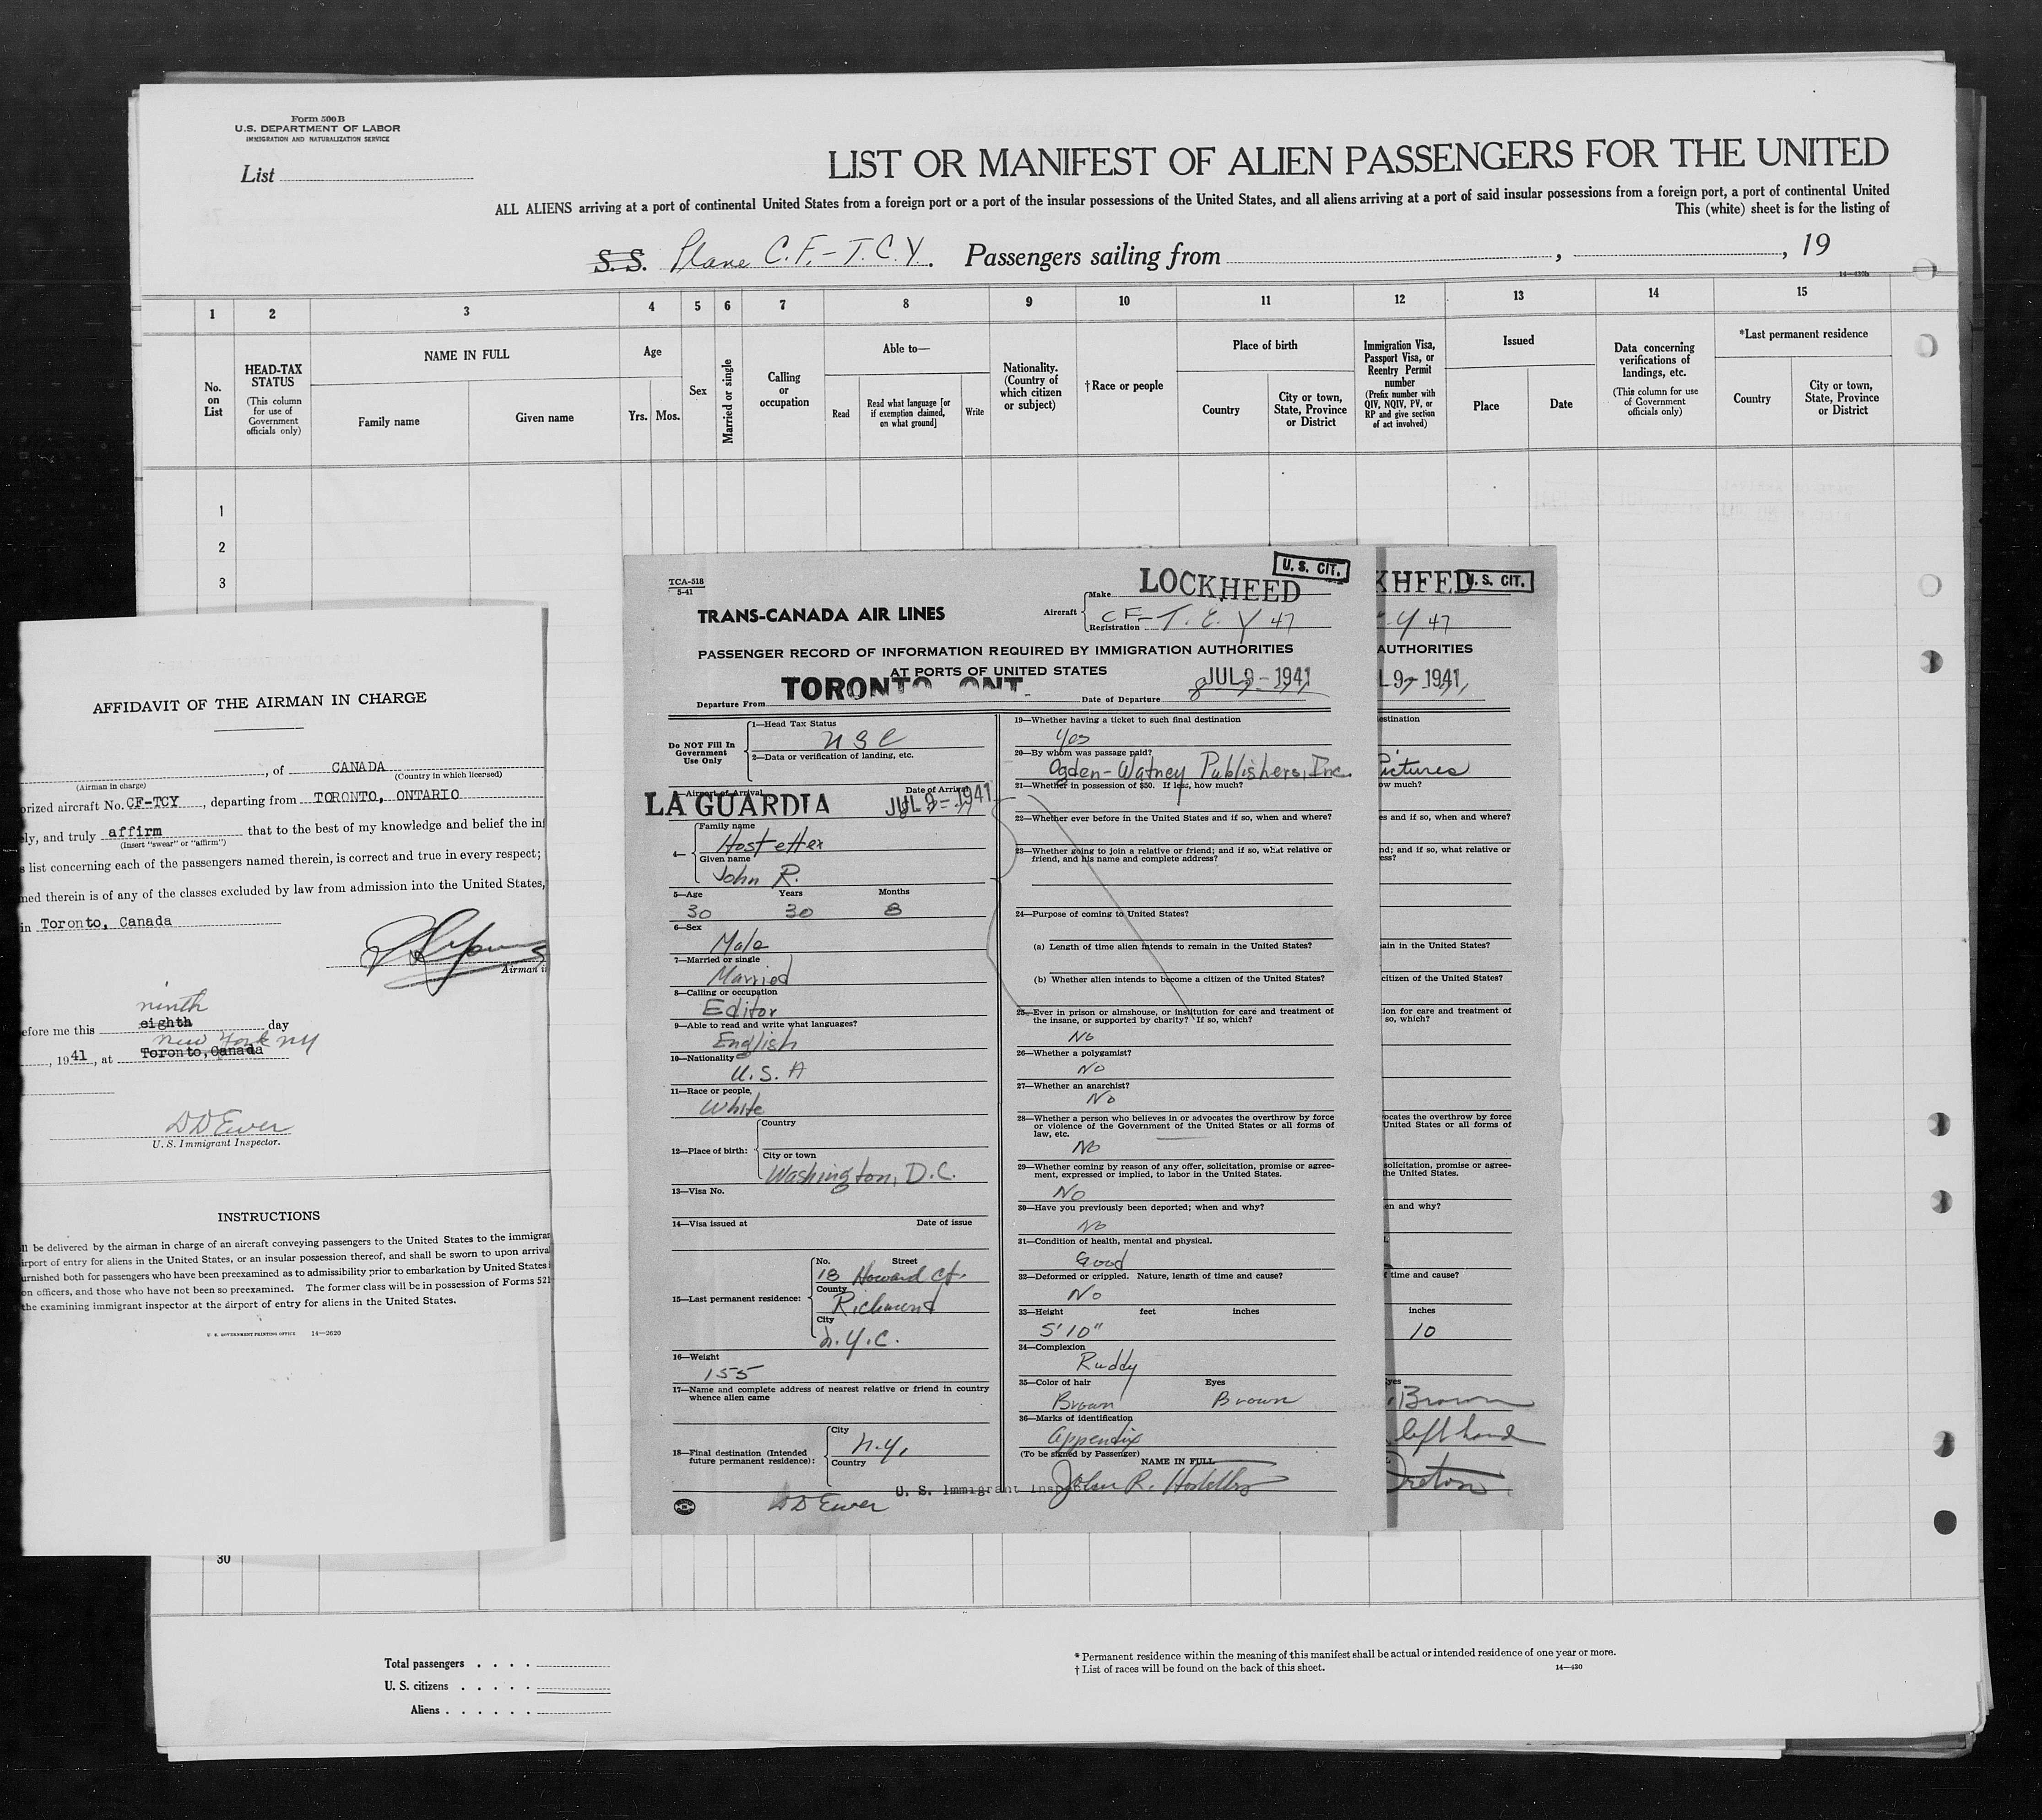 Form 500B
U.S. DEPARTMENT OF LABOR
IMMIGRATION AND NATURALIZATION SERVICE
List
LIST OR MANIFEST OF ALIEN PASSENGERS FOR THE UNITED
ALL ALIENS arriving at a port of continental United States from a foreign port or a port of the insular possessions of the United States, and all aliens arriving at a port of said insular possessions from a foreign port, a port of continental United
This (white) sheet is for the listing of
S.S. Plane C.F.-T.C.Y. Passengers sailing from , , 19
14—430b
1 2 3 4 5 6 7 8 9 10 11 12 13 14 15
No. on List
HEAD-TAX STATUS
(This column for use of Government officials only)
NAME IN FULL
Family name
Given name
Age
Yrs. Mos.
Sex
Married or single
Calling or occupation
Able to—
Read
Read what language [or if exemption claimed, on what ground]
Write
Nationality. (Country of which citizen or subject)
†Race or people
Place of birth
Country
City or town, State, Province or District
Immigration Visa, Passport Visa, or Reentry Permit number
(Prefix number with QIV, NQIV, PV, or RP and give section of act involved)
Issued
Place
Date
Data concerning verifications of landings, etc.
(This column for use of Government officials only)
*Last permanent residence
Country
City or town, State, Province or District
1
2
3
30
AFFIDAVIT OF THE AIRMAN IN CHARGE
, of CANADA
(Airman in charge) (Country in which licensed)
orized aircraft No. CF-TCY, departing from TORONTO, ONTARIO
ly, and truly affirm that to the best of my knowledge and belief the inf
(Insert "swear" or "affirm")
s list concerning each of the passengers named therein, is correct and true in every respect;
ned therein is of any of the classes excluded by law from admission into the United States,
in Toronto, Canada
Airman i
ninth
efore me this eighth day
New York NY
, 1941, at Toronto, Canada
DDEwer
U. S. Immigrant Inspector.
INSTRUCTIONS
ll be delivered by the airman in charge of an aircraft conveying passengers to the United States to the immigra
irport of entry for aliens in the United States, or an insular possession thereof, and shall be sworn to upon arriva
urnished both for passengers who have been preexamined as to admissibility prior to embarkation by United States
on officers, and those who have not been so preexamined. The former class will be in possession of Forms 521
the examining immigrant inspector at the airport of entry for aliens in the United States.
U. S. GOVERNMENT PRINTING OFFICE 14—2620
TCA-518
5-41
U. S. CIT.
TRANS-CANADA AIR LINES
Aircraft
Make LOCKHEED
Registration CF-T.C.Y 47
PASSENGER RECORD OF INFORMATION REQUIRED BY IMMIGRATION AUTHORITIES
AT PORTS OF UNITED STATES
Departure From TORONTO ONT. Date of Departure JUL 9-1941
Do NOT Fill In Government Use Only
1—Head Tax Status
USC
2—Data or verification of landing, etc.
3—Airport of Arrival Date of Arrival
LA GUARDIA JUL 9-1941
4—
Family name
Hostetter
Given name
John R.
5—Age Years Months
30 30 8
6—Sex
Male
7—Married or single
Married
8—Calling or occupation
Editor
9—Able to read and write what languages?
English
10—Nationality
U.S.A
11—Race or people,
White
12—Place of birth:
Country
City or town
Washington, D.C.
13—Visa No.
14—Visa issued at Date of issue
15—Last permanent residence:
No. Street
18 Howard Ct.
County
Richmond
City
N.Y.C.
16—Weight
155
17—Name and complete address of nearest relative or friend in country
whence alien came
18—Final destination (Intended future permanent residence):
City
N.Y.
Country
U. S. Immigrant Inspec
DDEwer
19—Whether having a ticket to such final destination
Yes
20—By whom was passage paid?
Ogden-Watney Publishers, Inc.
21—Whether in possession of $50. If less, how much?
22—Whether ever before in the United States and if so, when and where?
23—Whether going to join a relative or friend; and if so, what relative or
friend, and his name and complete address?
24—Purpose of coming to United States?
(a) Length of time alien intends to remain in the United States?
(b) Whether alien intends to become a citizen of the United States?
25—Ever in prison or almshouse, or institution for care and treatment of
the insane, or supported by charity? If so, which?
No
26—Whether a polygamist?
No
27—Whether an anarchist?
No
28—Whether a person who believes in or advocates the overthrow by force
or violence of the Government of the United States or all forms of
law, etc.
No
29—Whether coming by reason of any offer, solicitation, promise or agree-
ment, expressed or implied, to labor in the United States.
No
30—Have you previously been deported; when and why?
No
31—Condition of health, mental and physical.
Good
32—Deformed or crippled. Nature, length of time and cause?
No
33—Height feet inches
5'10"
34—Complexion
Ruddy
35—Color of hair Eyes
Brown Brown
36—Marks of identification
Appendix
(To be signed by Passenger)
NAME IN FULL
John R. Hostetter
KHEED U. S. CIT.
Y 47
AUTHORITIES
L 9-1941
estination
Pictures
ow much?
es and if so, when and where?
nd; and if so, what relative or
ess?
ain in the United States?
citizen of the United States?
ion for care and treatment of
so, which?
ocates the overthrow by force
United States or all forms of
solicitation, promise or agree-
the United States.
en and why?
f time and cause?
inches
10
yes
Brown
left hand
Total passengers
U. S. citizens
Aliens
* Permanent residence within the meaning of this manifest shall be actual or intended residence of one year or more.
† List of races will be found on the back of this sheet. 14—430